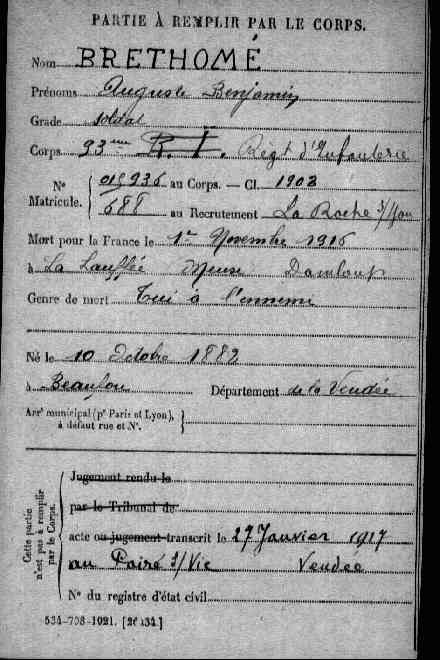 PARTIE À REMPLIR PAR LE CORPS.
Nom BRETHOMÉ
Prénoms Auguste Benjamin
Grade soldat
Corps 93ème R. I. Régt d'Infanterie
N° Matricule. { 015936 au Corps. — Cl. 1902
688 au Recrutement La Roche s/Yon
Mort pour la France le 1er Novembre 1916
à La Lauffée Meuse Damloup
Genre de mort Tué à l'ennemi
Né le 10 Octobre 1882
à Beaufou Département de la Vendée
Arrt municipal (pr Paris et Lyon), à défaut rue et N°. }
Cette partie n'est pas à remplir par le Corps.
Jugement rendu le
par le Tribunal de
acte ou jugement transcrit le 27 Janvier 1917
au Poiré s/Vie Vendée
N° du registre d'état civil
534-708-1921. [26434.]